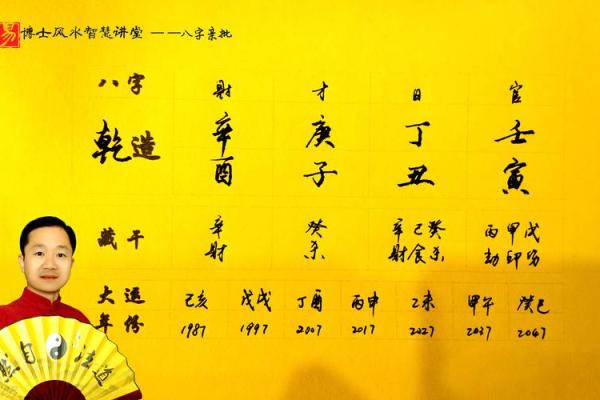 易 博士风水智慧讲堂 ——八字亲批
八字 財 才 日 官
乾造 辛 庚 丁 壬
酉 子 丑 寅
藏干 辛 癸 辛己癸 丙甲戊
财 杀 财食杀 劫印伤
大運 己亥 戊戌 丁酉 丙申 乙未 甲午 癸巳
年份 1987 1997 2007 2017 2027 2037 2047
然自法道